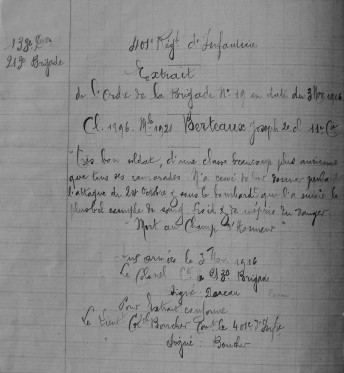 133e Don
213e Brigade
401e Régt d'Infanterie
Extrait
de l'Ordre de la Brigade N° 19 en date du 3 Nov. 1916
Cl. 1896. Mle 1921 Berteaux Joseph 2e cl 11e Cie
"Très bon soldat, d'une classe beaucoup plus ancienne
que tous ses camarades. N'a cessé de leur donner pendant
l'attaque du 24 Octobre & sous le bombardt qui l'a suivie le
plus bel exemple de sang-froid & de mépris du danger.
"Mort au Champ d'Honneur"
Aux armées le 3 Nov. 1916
Le Colonel Ct la 213e Brigade
Signé: 
Pour Extrait conforme
Le Lieut Col. Boucher Comt le 401e d'Infie
Signé: Boucher